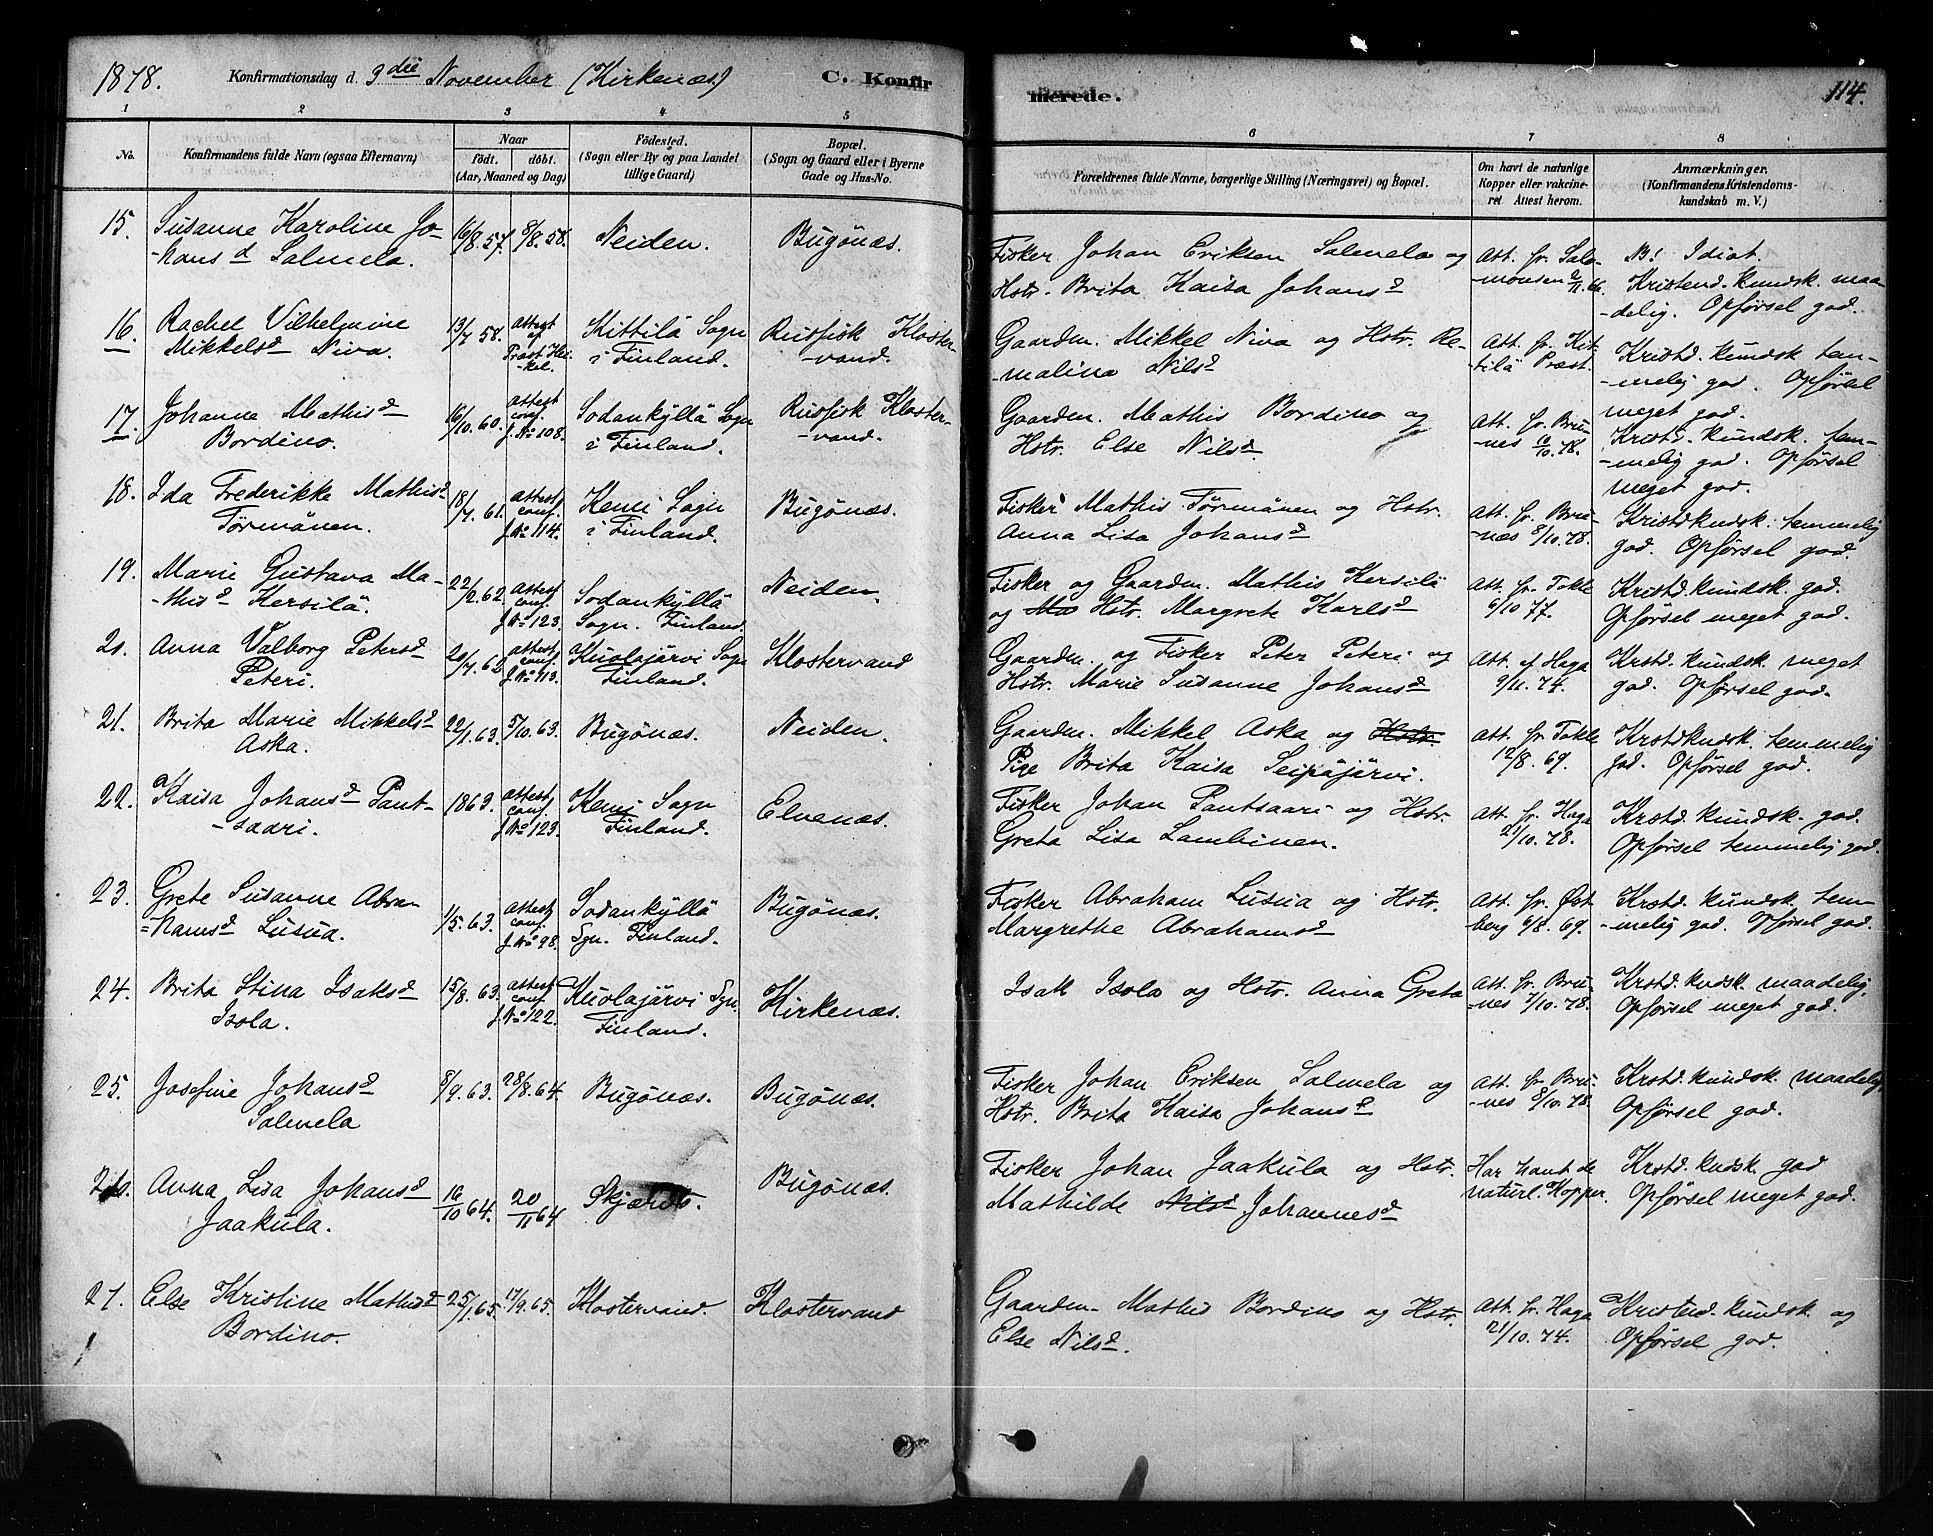 1878. Konfirmationsdag d. 3die November (Kirkenæs) C. Konfir
merede. 114.
1 2 3 4 5 6 7 8
No. Konfirmandens fulde Navn (ogsaa Efternavn)
Naar
födt. döbt.
(Aar, Maaned og Dag)
Födested.
(Sogn eller By og paa Landet
tillige Gaard)
Bopæl.
(Sogn og Gaard eller i Byerne
Gade og Hus-No.
Forældrenes fulde Navne, borgerlige Stilling (Næringsvei) og Bopæl.
Om havt de naturlige
Kopper eller vakcine-
ret Attest herom.
Anmærkninger.
(Konfirmandens Kristendoms-
kundskab m. V.)
15. Susanne Karoline Jo-
-hansd Salmela.
16/8.57. 8/8.58.
Neiden.
Bugönæs.
Fisker Johan Eriksen Salmela og
Hstr. Brita Kaisa Johansd
Att. fr. Salo-
-monsen 2/11.66.
N! Idiot.
Kristend. kundsk. maa-
-delig. Opförsel god.
16. Rachel Vilhelmine
Mikkelsd Niva.
13/7 58.
Attest
af
Præst Hei-
-kel.
Kittilä Sogn
i Finland.
Russisk Kloster-
vand.
Gaardm. Mikkel Niva og Hstr. Re-
-malina Nilsd
Att. fr. Kit-
-tilä Præst.
Kristd. kundsk. tem-
-melig god. Opförsel
meget god.
17. Johanne Mathisd
Bordino.
16/10.60.
Attest
conf.
J.No 108.
Sodankyllä Sogn
i Finland.
Russisk Kloster-
-vand.
Gaardm. Mathis Bordino og
Hstr. Else Nilsd
Att. fr. Bru-
-nes 10/10.78.
Kristd. kundsk. tem-
-melig god. Opförsel
meget god.
18. Ida Frederikke Mathisd
Törmänen.
18/7 61.
Attest
conf.
J.No 114.
Kemi Sogn
i Finland.
Bugönæs.
Fisker Mathis Törmänen og Hstr.
Anna Lisa Johansd
Att. fr. Bru-
-næs 8/10.78.
Kristdkundsk. temmelig
god. Opförsel god.
19. Marie Gustava Ma-
-thisd Kersilä.
22/2.62.
Attest
conf.
J.No 123.
Sodankyllä
Sogn. Finland.
Neiden.
Fisker og Gaardm. Mathis Kersilä
og Hstr. Margrete Karlsd
Att. fr. Tokle
6/10 77.
Kristd. kundsk. god.
Opförsel meget god.
20. Anna Valborg Petersd
Peteri.
20/7.62
Attest
conf.
J.No 113.
Kuolajärvi Sogn
Finland.
Klostervand
Gaardm. og Fisker Peter Peteri og
Hstr. Marie Susanne Johansd
Att. af Haga
9/11.74.
Krstd. kundsk. meget
god. Opförsel god.
21. Brita Marie Mikkelsd
Aska.
22/1.63. 5/10.63.
Bugönæs.
Neiden.
Gaardm. Mikkel Aska og Hstr.
Pige Brita Kaisa Seipäjärvi.
Att. fr. Tokle
12/8.69.
Krstdkundsk. temmelig
god. Opförsel god.
22. Kaisa Johansd Pant-
-saari.
1863.
Attest
conf.
J.No 123.
Kemi Sogn
Finland.
Elvenæs.
Fisker Johan Pantsaari og Hstr.
Greta Lisa Lambinen.
Att. fr. Haga
21/10.78.
Krstd. kundsk. god.
Opförsel temmelig god.
23. Grete Susanne Abra-
=hamsd Lusua.
1/5.63.
Attest
conf.
J.No 98.
Sodankyllä
Sgn. Finland.
Bugönæs.
Fisker Abraham Lusua og Hstr.
Margrethe Abrahamsd
Att. fr. Øst-
berg 6/8.69.
Krstd. kundsk. tem-
-melig god. Opförsel god.
24. Brita Stina Isaksd
Isola.
15/8.63.
Attest
conf
J.No 122.
Kuolajärvi Sgn.
Finland.
Kirkenæs.
Isak Isola og Hstr. Anna Greta
Att. fr. Bru-
-nes 7/10.78.
Krstd. kndsk. maadelig.
Opförsel meget god.
25. Josefine Johansd
Salmela
8/9.63. 28/8.64.
Bugönæs.
Bugönæs.
Fisker Johan Eriksen Salmela og
Hstr. Brita Kaisa Johansd
Att. fr. Bru-
nes 8/10.78.
Krstd. kundsk. maadelig,
Opförsel god.
26. Anna Lisa Johansd
Jaakula.
16/10 64. 20/11 64
Bugönæs.
Fisker Johan Jaakula og Hstr.
Mathilde Nilsd Johannesd
Har havt de
naturl. Kopper.
Krstd. kndsk. god
Opförsel meget god.
27. Else Kristine Mathisd
Bordino.
25/1.65. 17/9.65.
Klostervand.
Klostervand
Gaardm. Mathis Bordino og Hstr.
Else Nilsd.
Att. fr. Haga
21/10.74.
Kristend. kundsk. og
Opförsel god.